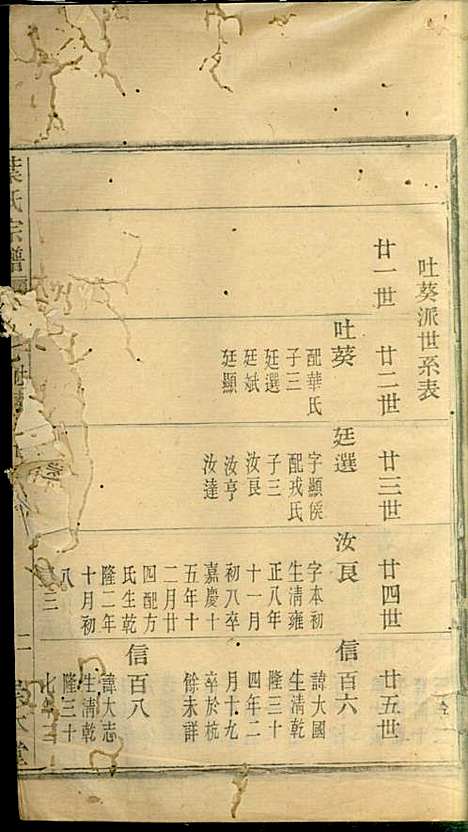 吐葵派世系表
廿一世
廿二世
廿三世
廿四世
廿五世
吐葵
配華氏
子三
廷選
廷斌
廷顯
廷選
字顯侯
配戎氏
子三
汝良
汝亨
汝達
汝良
字本初
生清雍
正八年
十一月
初八卒
嘉慶十
五年十
二月廿
四配方
氏生乾
隆二年
十月初
八
三
信百六
諱大國
生清乾
隆三十
四年二
月十九
卒於杭
餘未詳
信百八
諱大志
生清乾
隆三十
七年
葉氏宗譜
二